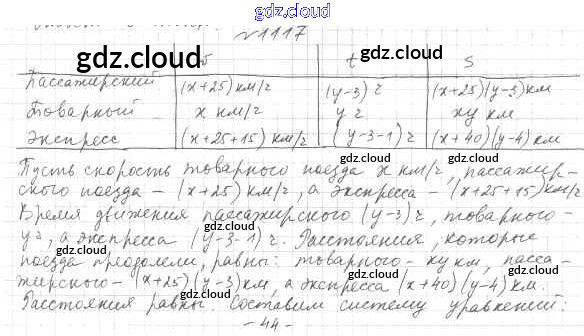 gdz.cloud
№1117
gdz.cloud gdz.cloud
v t s
Пассажирский (x+25) км/ч (y-3) ч (x+25)(y-3) км
Товарный x км/ч y ч xy км
Экспресс (x+25+15) км/ч (y-3-1) ч (x+40)(y-4) км
gdz.cloud gdz.cloud
Пусть скорость товарного поезда x км/ч, пассажир-
ского поезда - (x+25) км/ч, а экспресса - (x+25+15) км/ч
gdz.cloud gdz.cloud
Время движения пассажирского (y-3) ч, товарного -
y ч, а экспресса (y-3-1) ч. Расстояния, которые
gdz.cloud gdz.cloud
поезда преодолели, равны: товарного - xy км, пасса-
жирского - (x+25)(y-3) км, а экспресса (x+40)(y-4) км.
gdz.cloud gdz.cloud
Расстояния равны. Составим систему уравнений:
- 44 -